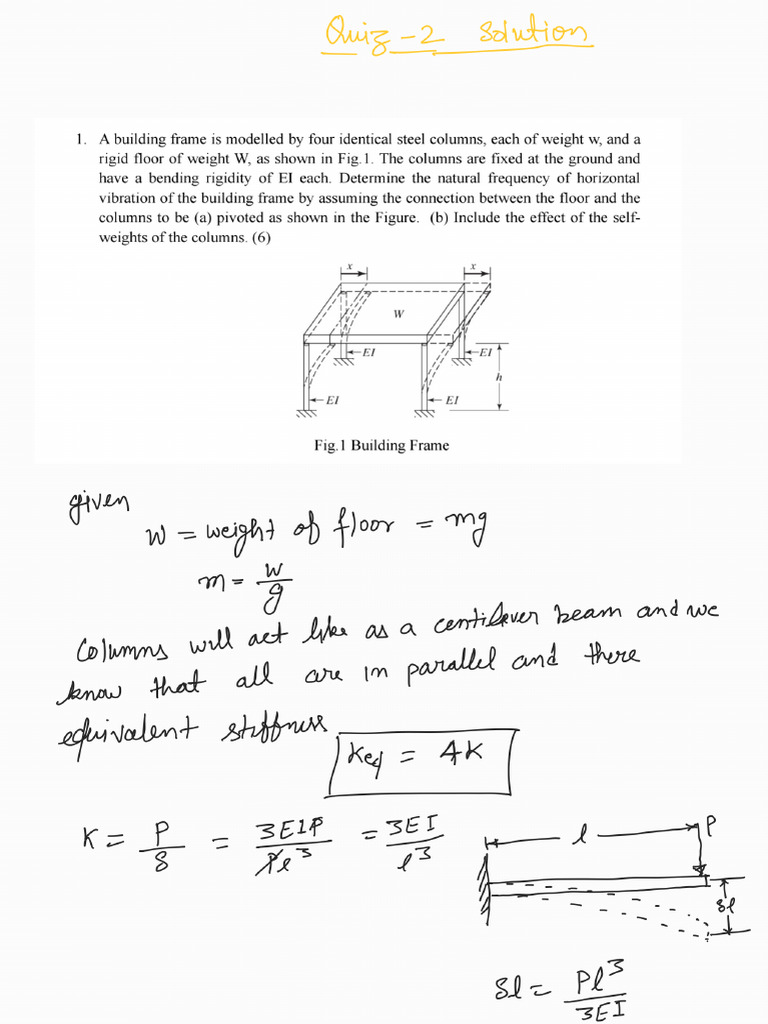 Quiz-2 Solution
1. A building frame is modelled by four identical steel columns, each of weight w, and a
rigid floor of weight W, as shown in Fig.1. The columns are fixed at the ground and
have a bending rigidity of EI each. Determine the natural frequency of horizontal
vibration of the building frame by assuming the connection between the floor and the
columns to be (a) pivoted as shown in the Figure. (b) Include the effect of the self-
weights of the columns. (6)
x x
W
EI EI
h
EI EI
Fig.1 Building Frame
given
W = weight of floor = mg
m = W/g
Columns will act like as a centilever beam and we
know that all are in parallel and there
equivalent stiffness
Keq = 4K
K = P/δ = 3EIP/Pl³ = 3EI/l³
l P
δl
δl = Pl³/3EI